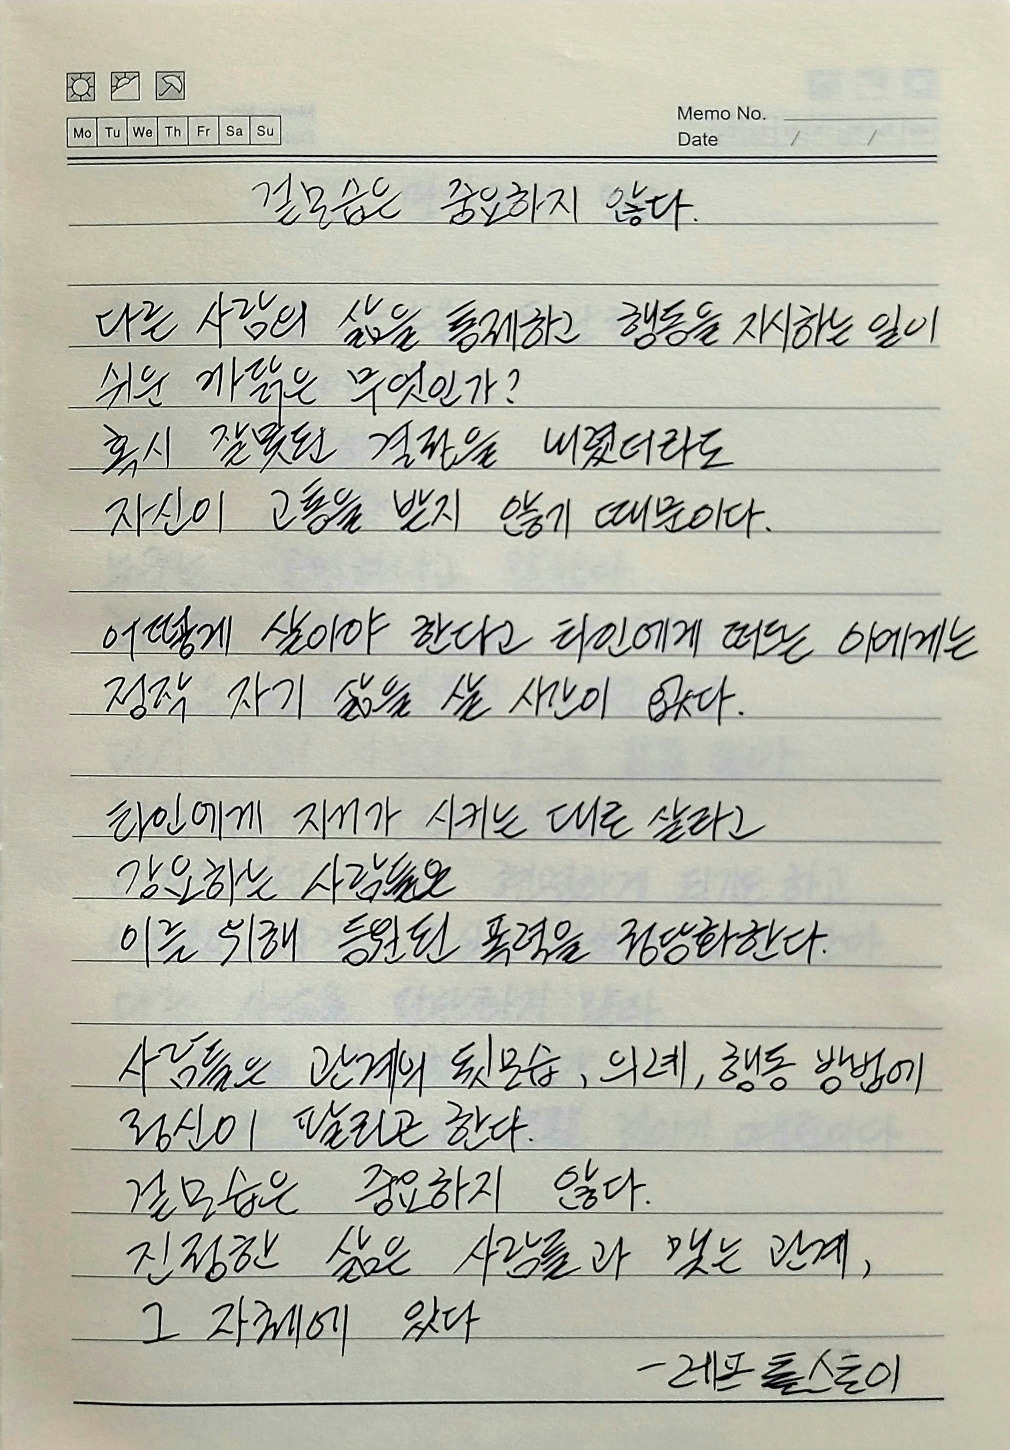 Mo Tu We Th Fr Sa Su
Memo No.
Date / /
겉모습은 중요하지 않다.
다른 사람의 삶을 통제하고 행동을 지시하는 일이
쉬운 까닭은 무엇인가?
혹시 잘못된 결정을 내렸더라도
자신이 고통을 받지 않기 때문이다.
어떻게 살아야 한다고 타인에게 떠드는 이에게는
정작 자기 삶을 살 시간이 없다.
타인에게 자기가 시키는 대로 살라고
강요하는 사람들은
이를 위해 동원된 폭력을 정당화한다.
사람들은 관계의 뒷모습, 의례, 행동 방법에
정신이 팔리곤 한다.
겉모습은 중요하지 않다.
진정한 삶은 사람들과 맺는 관계,
그 자체에 있다
- 레프 톨스토이